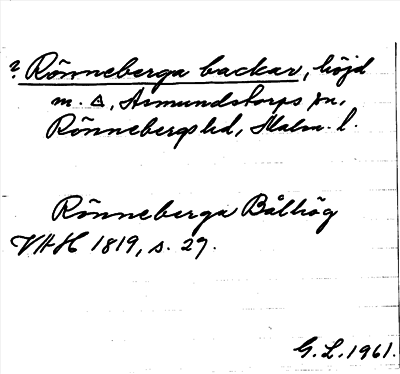 ? Rönneberga backar, höjd
m. △, Asmundstorps sn,
Rönnebergs hd, Malm. l.
Rönneberga Bålhög
VHH 1819, s. 27.
G. L. 1961.